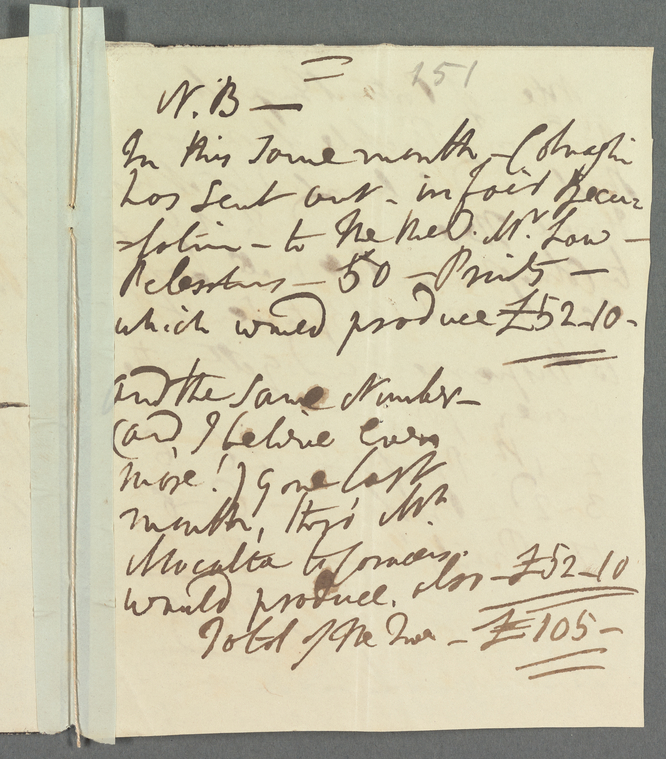 151
N.B —
In this Same month – Colnaghi
has Sent out – in fair Specu=
=lation – to the Rev.d Mr. Law –
– 50 – Prints –
which would produce £52-10-
and the Same Number –
(and, I believe even
more!) gone last
month, thro' Mr.
Mocatta to
would produce, also – £52-10
Total of the Two – £105 –